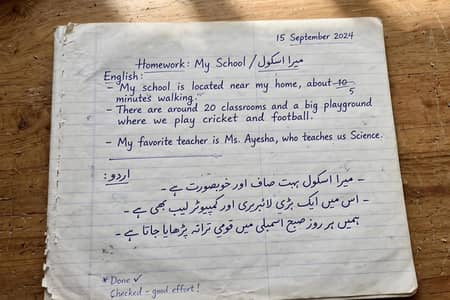 15 September 2024
Homework: My School / میرا اسکول
English:
- My school is located near my home, about 10 5
minutes walking.
- There are around 20 classrooms and a big playground
where we play cricket and football.
- My favorite teacher is Ms. Ayesha, who teaches us Science.
اردو:
- میرا اسکول بہت صاف اور خوبصورت ہے -
- اس میں ایک بڑی لائبریری اور کمپیوٹر لیب بھی ہے -
ہمیں ہر روز صبح اسمبلی میں قومی ترانہ پڑھایا جاتا ہے -
* Done ✓
Checked - good effort!